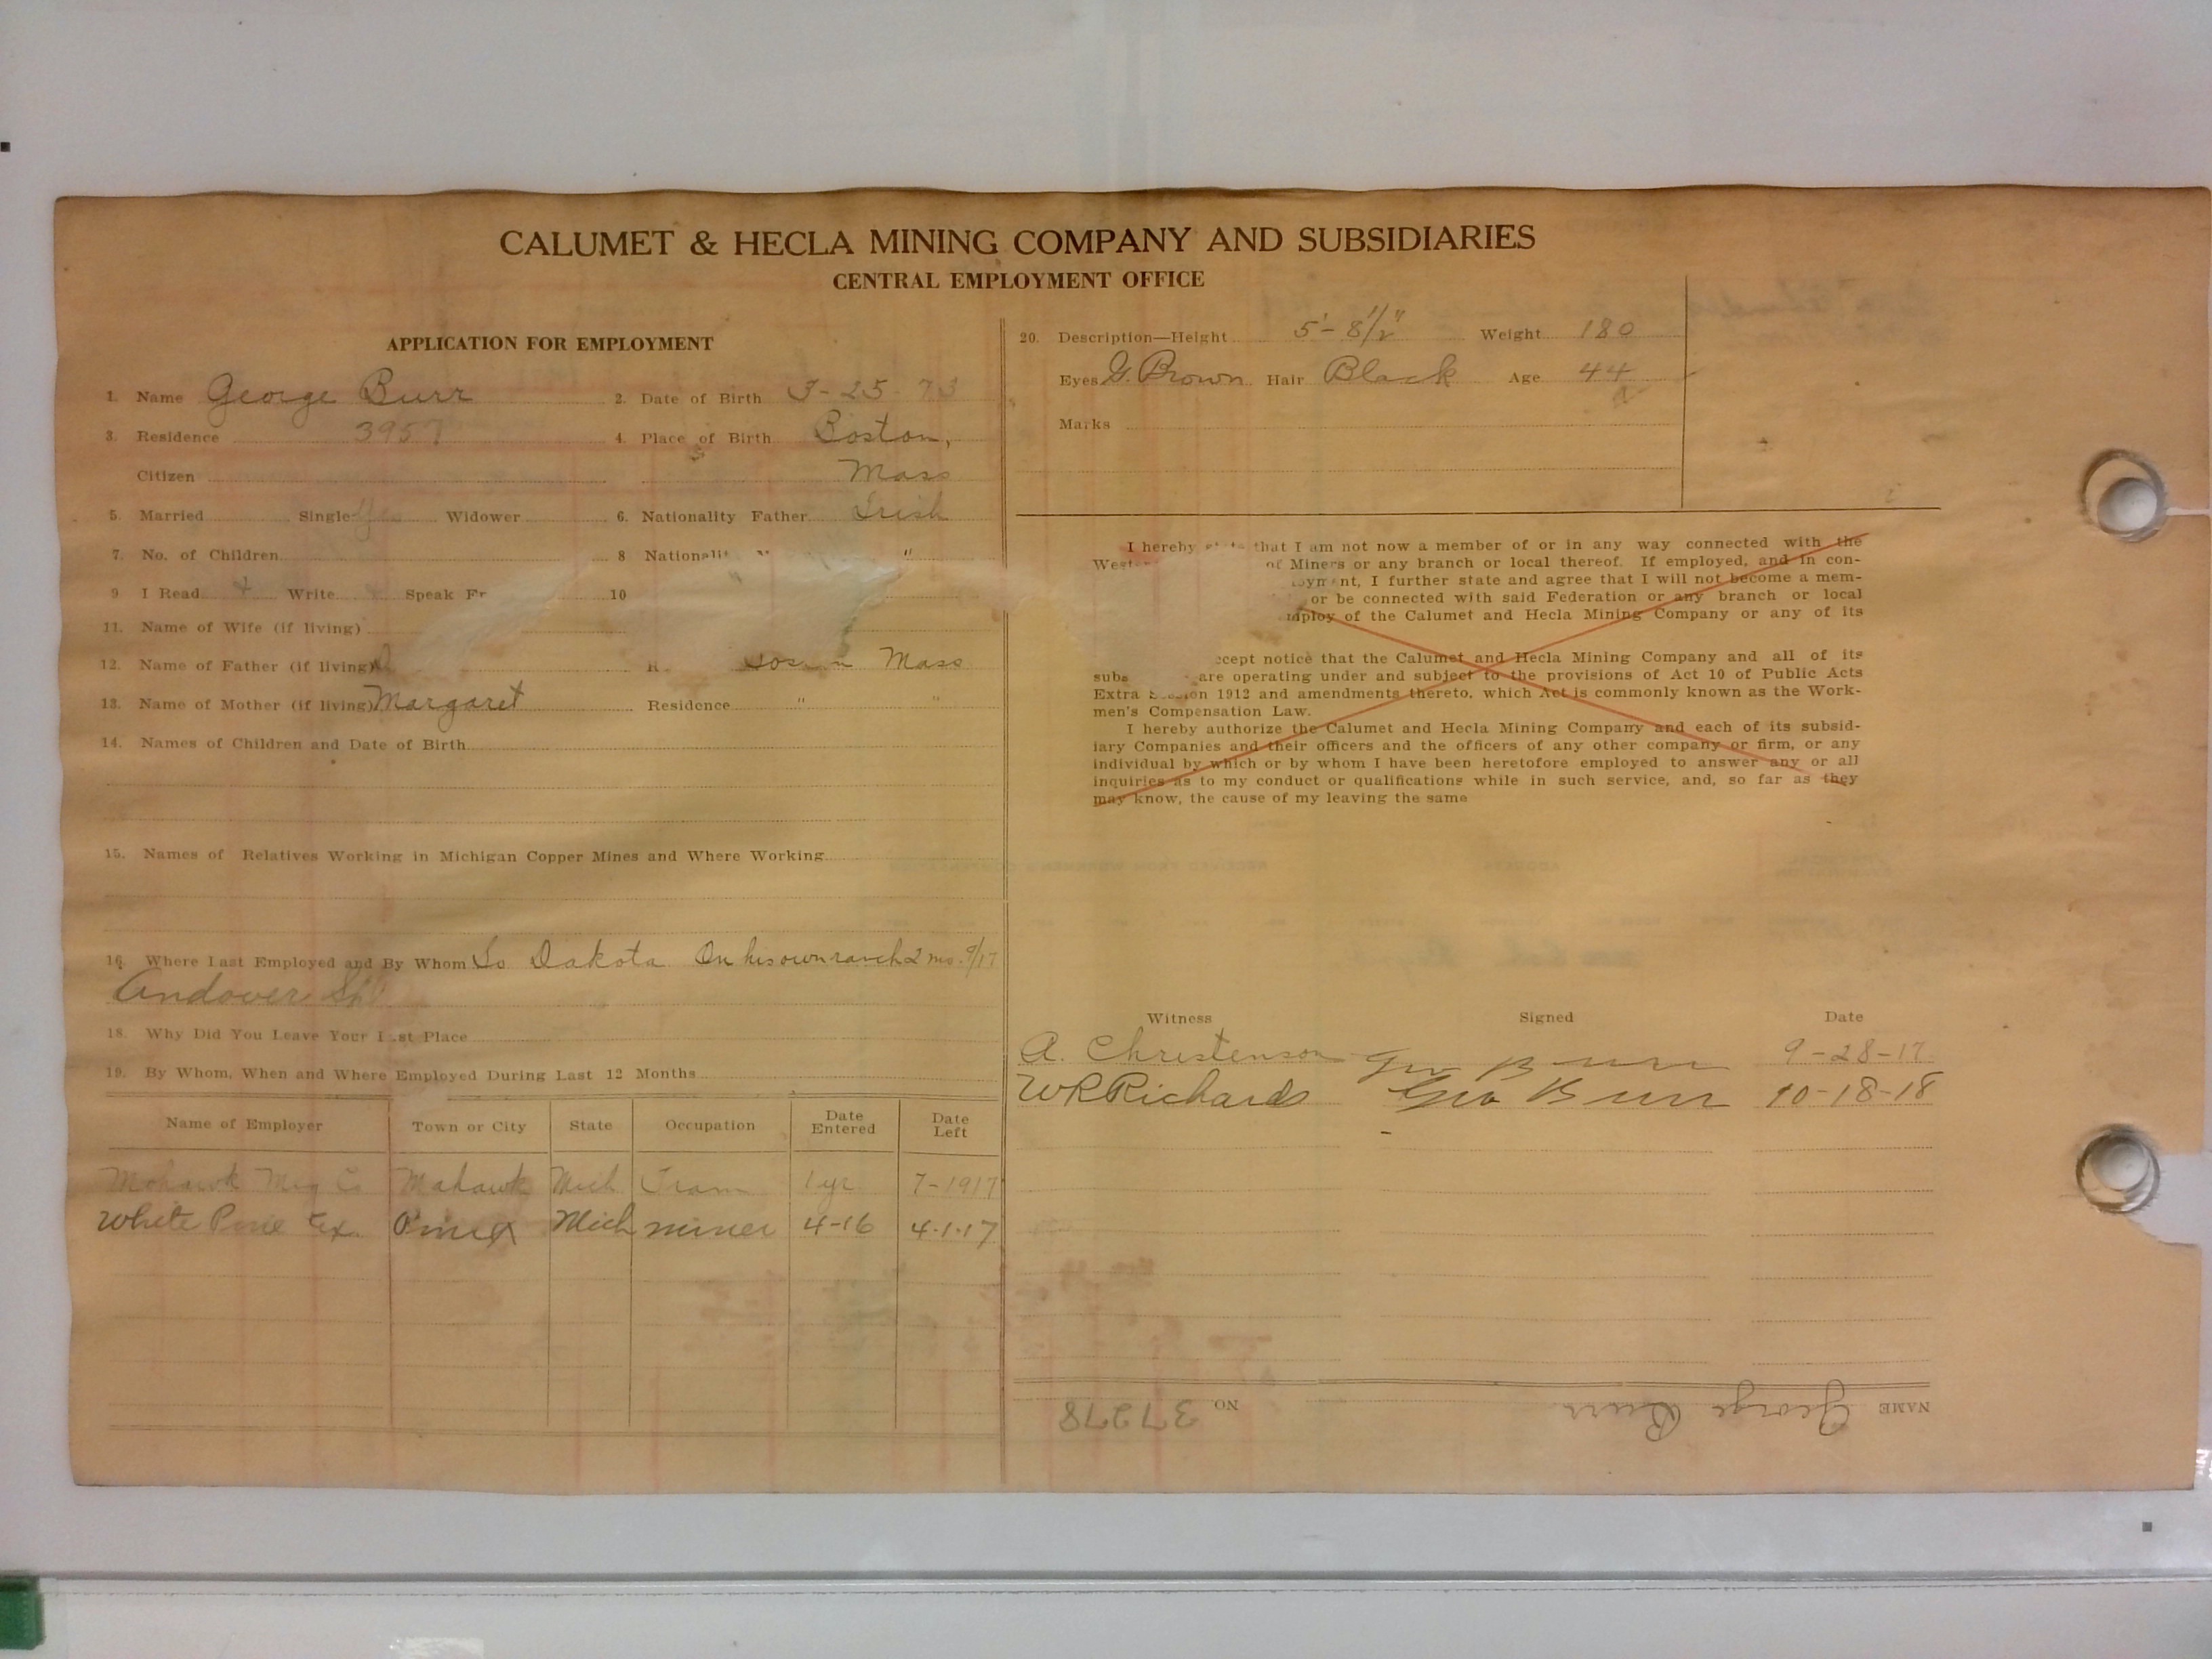 CALUMET & HECLA MINING COMPANY AND SUBSIDIARIES
CENTRAL EMPLOYMENT OFFICE
APPLICATION FOR EMPLOYMENT
1. Name George Burr 2. Date of Birth 3-25-73
3. Residence 3957 4. Place of Birth Boston,
Citizen Mass
5. Married Single Yes Widower 6. Nationality Father Irish
7. No. of Children 8 "
9. I Read Write Speak 10
11. Name of Wife (if living)
12. Name of Father (if living) Mass
13. Name of Mother (if living) Margaret Residence " "
14. Names of Children and Date of Birth
15. Names of Relatives Working in Michigan Copper Mines and Where Working
16. Where Last Employed and By Whom So Dakota On his own ranch 2 mo. 9/17
Andover
18. Why Did You Leave Your Last Place
19. By Whom, When and Where Employed During Last 12 Months
Name of Employer Town or City State Occupation Date Entered Date Left
Mohawk Mng Co Mohawk Mich Tram 1 yr 7-1917
White Pine Ex. Mich miner 4-16 4-1-17
20. Description—Height 5'-8 1/2" Weight 180
Eyes G. Brown Hair Black Age 44
Marks
I hereby that I am not now a member of or in any way connected with the
of Miners or any branch or local thereof. If employed, and in con-
I further state and agree that I will not become a mem-
or be connected with said Federation or any branch or local
of the Calumet and Hecla Mining Company or any of its
notice that the Calumet and Hecla Mining Company and all of its
are operating under and subject to the provisions of Act 10 of Public Acts
Extra Session 1912 and amendments thereto, which Act is commonly known as the Work-
men's Compensation Law.
I hereby authorize the Calumet and Hecla Mining Company and each of its subsid-
iary Companies and their officers and the officers of any other company or firm, or any
individual by which or by whom I have been heretofore employed to answer any or all
inquiries as to my conduct or qualifications while in such service, and, so far as they
may know, the cause of my leaving the same
Witness Signed Date
A. Christenson Geo Burr 9-28-17
WR Richards Geo Burr 10-18-18
NAME George Burr NO 37278